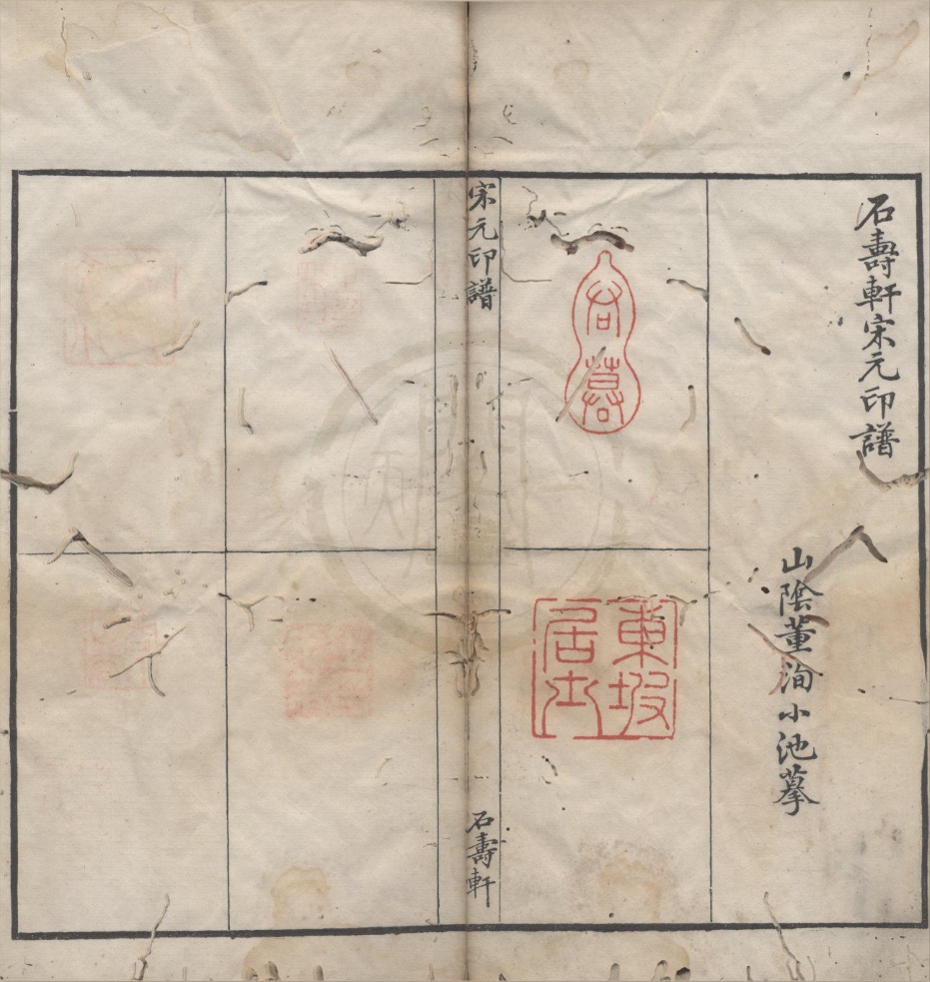 石壽軒宋元印譜
山陰董洵小池摹
東坡居士
宋元印譜
石壽軒